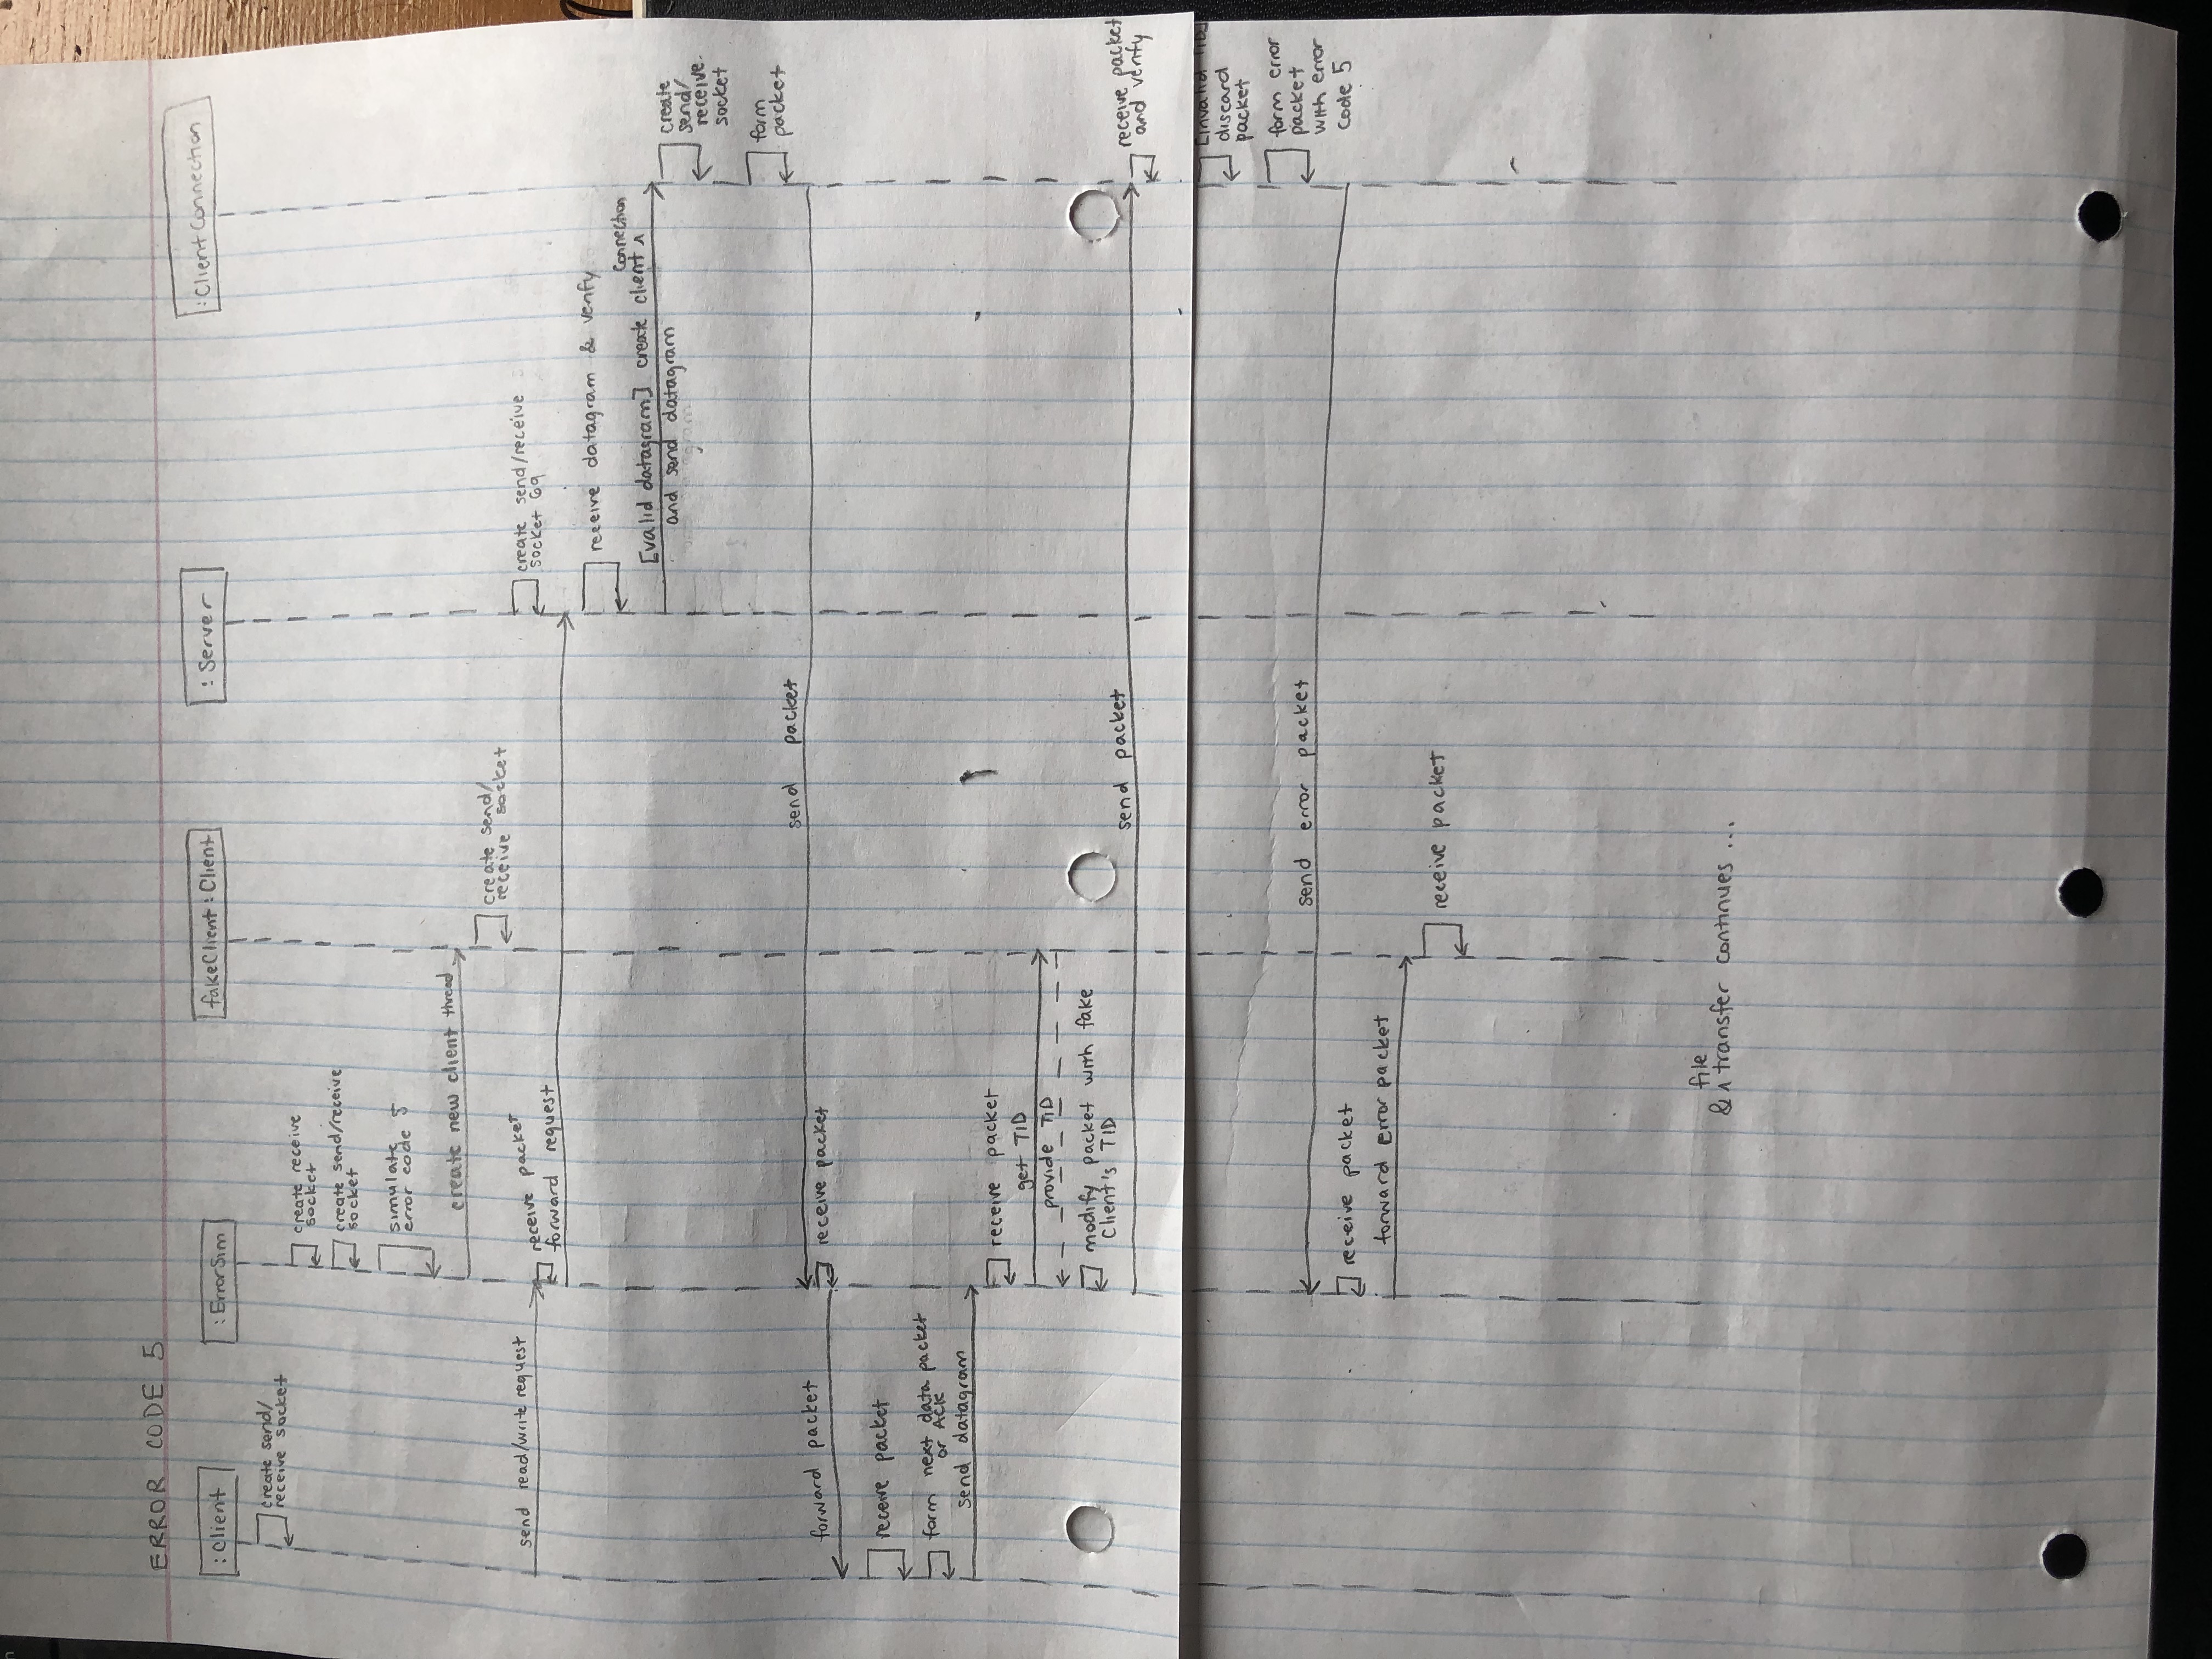 ERROR CODE 5
:Client
:ErrorSim
fakeClient:Client
:Server
:ClientConnection
create send/
receive socket
create receive
socket
create send/receive
socket
simulate
error code 5
create new client thread
create send/
receive socket
send read/write request
receive packet
forward request
create send/receive
socket 69
receive datagram & verify
Connection
[valid datagram] create client ^
and send datagram
create
send/
receive
socket
form
packet
send packet
forward packet
receive packet
receive packet
form next data packet
or ACK
send datagram
receive packet
get TID
provide TID
modify packet with fake
Client's TID
send packet
receive packet
and verify
[invalid TID]
discard
packet
form error
packet
with error
code 5
send error packet
receive packet
forward error packet
receive packet
file
& ^ transfer continues ...